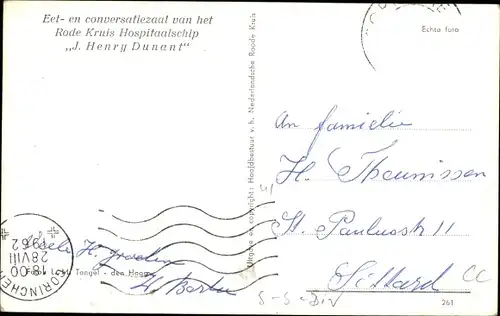 Eet- en conversatiezaal van het
Rode Kruis Hospitaalschip
„J. Henry Dunant"
Echte foto
Uitgave en copyright: Hoofdbestuur v. h. Nederlandsche Roode Kruis
An familie
H. Theunissen
St. Paulusstr 11
Sittard
Vele H. groeten
Foto: Tangel - den Haag
GORINCHEM
18.00
28 VIII
1962
S-S-Div
261